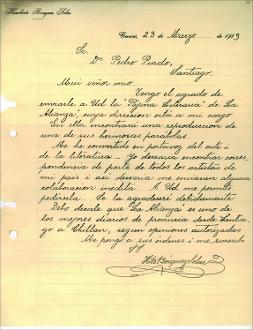 Humberto Borquez Solar
Curicó, 23 de Marzo de 1913
Sr.
Dn Pedro Prado,
Santiago.
Mui señor mio.
Tengo el agrado de
enviarle a Ud la "Pájina Literaria" de "La
Alianza", cuya direccion esta a mi cargo
En ella encontrará una reproduccion de
una de sus hermosas parábolas
Me he convertido en portavoz del arte i
de la literatura - Yo desearia encontrar corres
pondencia de parte de todos los artistas de
mi pais i asi desearia me enviaran alguna
colaboracion inedita. A Ud me permito
pedirsela. Se la agradeceré debidamente
Debo decirle que "La Alianza" es uno de
los mejores diarios de provincia desde Santia
go a Chillan, segun opiniones autorizadas
Me pongo a sus ordenes i me suscribo
S.S.
Hto Borquez Solar